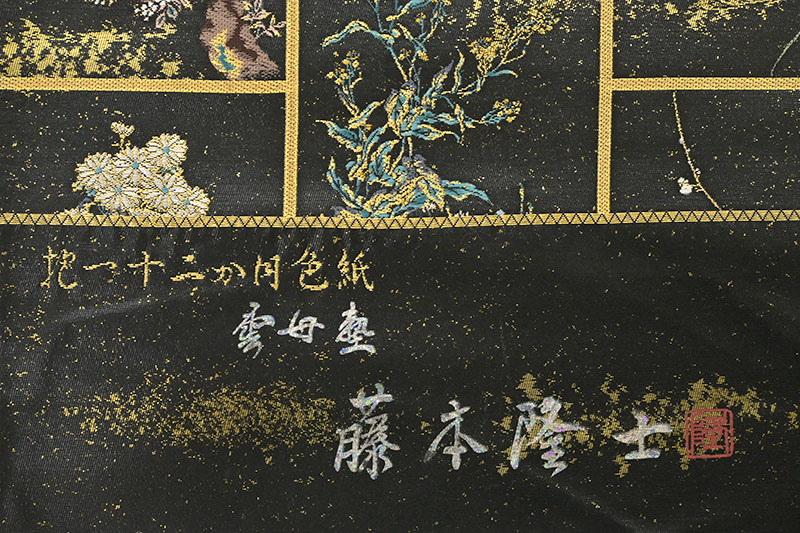 抱一十二か月色紙
雲母塾
藤本隆士